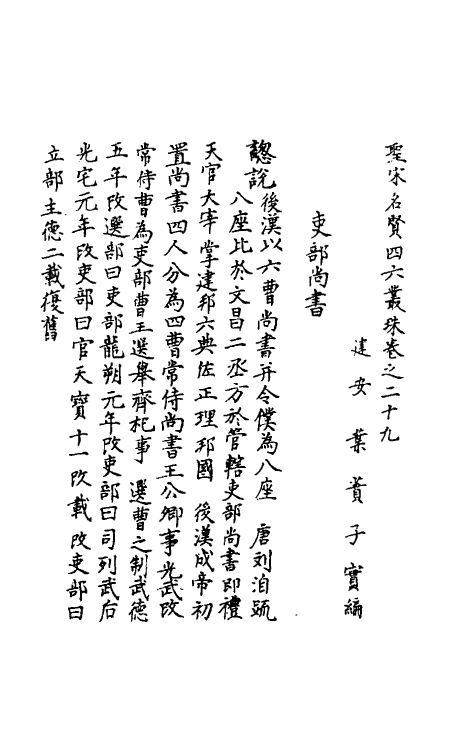 聖宋名賢四六叢珠卷之二十九
建安葉蕡子實編
吏部尚書
總說後漢以六曹尚書并令僕為八座　唐刘洎疏
八座比於文昌二丞方於管轄吏部尚書即禮
天官大宰掌建邦六典佐正理邦國　後漢成帝初
置尚書四人分為四曹常侍尚書王公卿事光武改
常侍曹為吏部曹王選舉齊祀事　選曹之制武德
五年改選部曰吏部龍朔元年改吏部曰司列武后
光宅元年改吏部曰官天寶十一改載改吏部曰
立部主德二載復舊